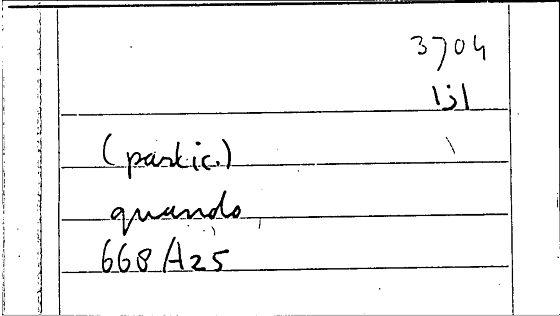 3704
اذا
(partic.)
quando
668 A25